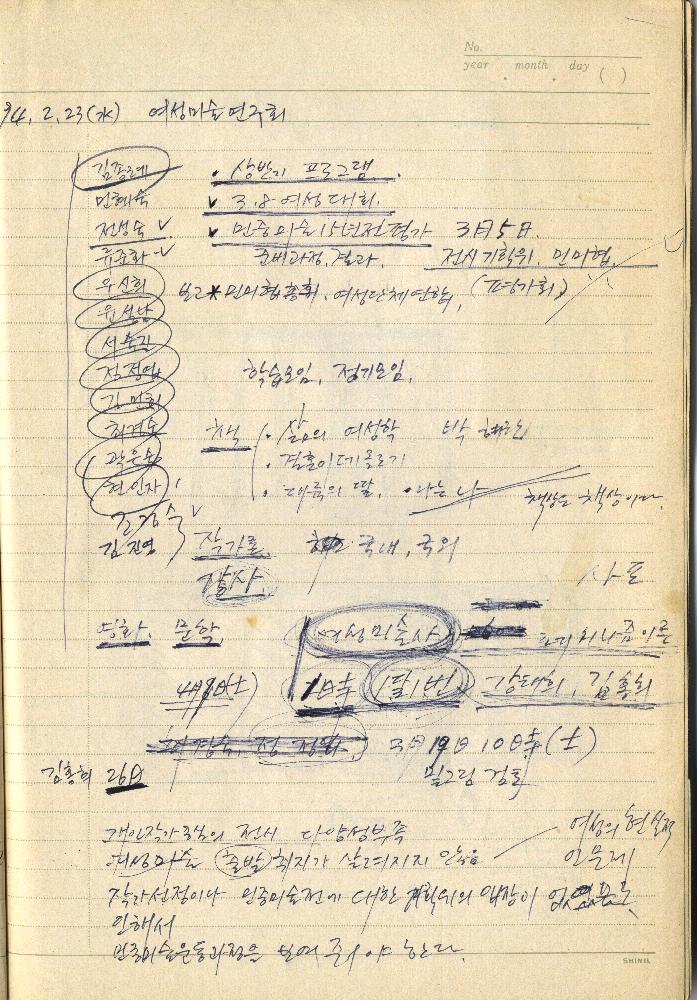 No.
year month day ( )
94. 2. 23(水) 여성미술연구회
김종례 • 상반기 프로그램.
민혜숙 ✓ 3.8 여성대회.
전성숙 ✓ ✓ 민중미술15년전 평가 3月5日.
류준화 ✓ 준비과정, 결과. 전시기획위, 민미협
우신희 보고 * 민미협총회. 여성단체연합, (평가회)
윤석남
서숙진
정정엽 학습모임, 정기모임.
김민희
최경숙 책 • 삶의 여성학 박혜란
곽은숙 • 결혼이데올로기
현인자 • 대륙의 딸. • 나는 나 책상은 책상이다.
김영숙 ✓
김진영 작가론 국내, 국외
답사. 사포
영화. 문학. 여성미술사
4月9日(土) 1日 (달1번) 강태희, 김홍희
최경숙, 정정엽 3月 19日 10時(土)
김홍희 26日 밀그림 검토
개인작가 중심의 전시 다양성부족 여성의 현실적
여성미술 출발 취지가 살려지지 않음 인문제
작가선정이나 민중미술전에 대한 기획위의 입장이 없음으로
인해서
민중미술운동과정을 보여 주어야 한다.
SHINIL